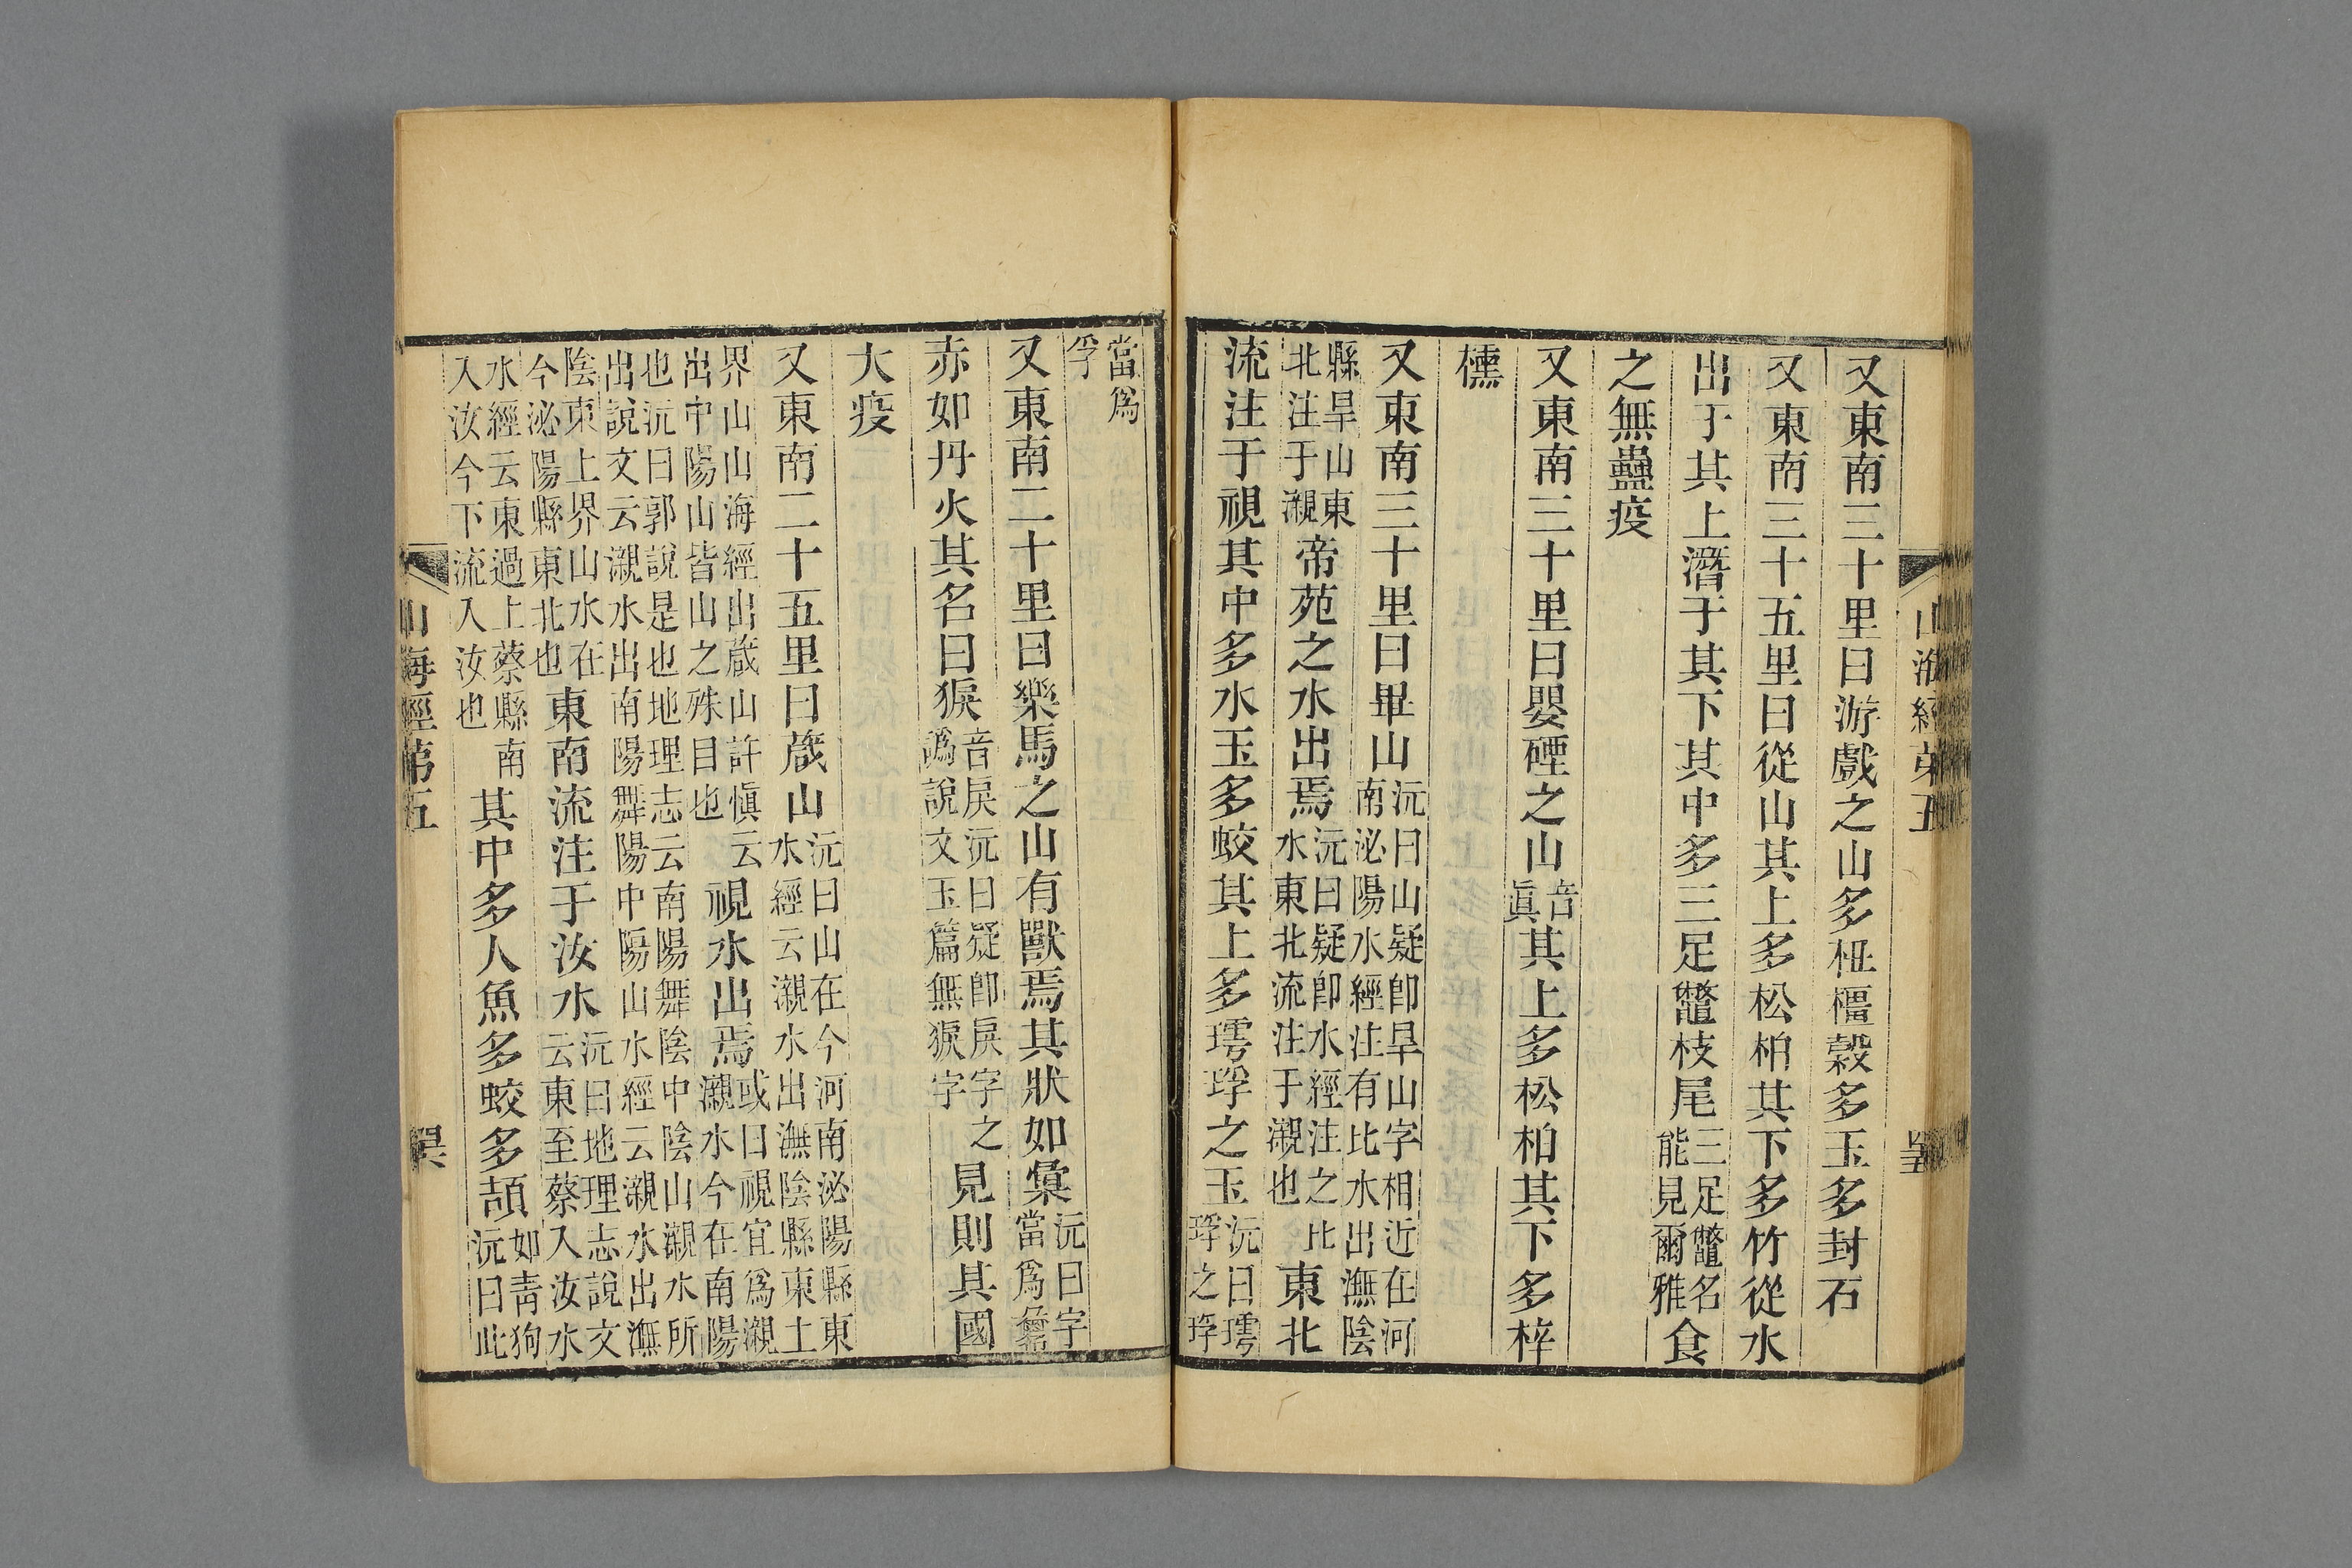 山海經弟五
又東南三十里曰游戲之山多杻橿榖多玉多封石
又東南三十五里曰從山其上多松柏其下多竹從水
出于其上潛于其下其中多三足鼈枝尾三足鼈名能見爾雅食
之無蠱疫
又東南三十里曰嬰䃌之山音眞其上多松柏其下多梓
櫄
又東南三十里曰畢山沅曰山疑卽旱山字相近在河南泌陽水經注有比水出潕陰
縣旱山東北注于瀙帝苑之水出焉沅曰疑卽水經注之比水東北流注于瀙也東北
流注于視其中多水玉多蛟其上多㻬琈之玉沅曰㻬琈之琈
當爲孚
又東南二十里曰樂馬之山有獸焉其狀如彙沅曰字當爲彙
赤如丹火其名曰㺐音戾沅曰疑卽戾字之譌說文玉篇無㺐字見則其國
大疫
又東南二十五里曰葴山沅曰山在今河南泌陽縣東水經云瀙水出潕陰縣東上
界山山海經出葴山許愼云出中陽山皆山之殊目也視水出焉或曰視宜爲瀙瀙水今在南陽
也沅曰郭說是也地理志云南陽舞陰中陰山瀙水所出說文云瀙水出南陽舞陽中陽山水經云瀙水出潕
陰東上界山水在今泌陽縣東北也東南流注于汝水沅曰地理志說文云東至蔡入汝水
水經云東過上蔡縣南入汝今下流入汝也其中多人魚多蛟多頡如靑狗沅曰此
山海經第五